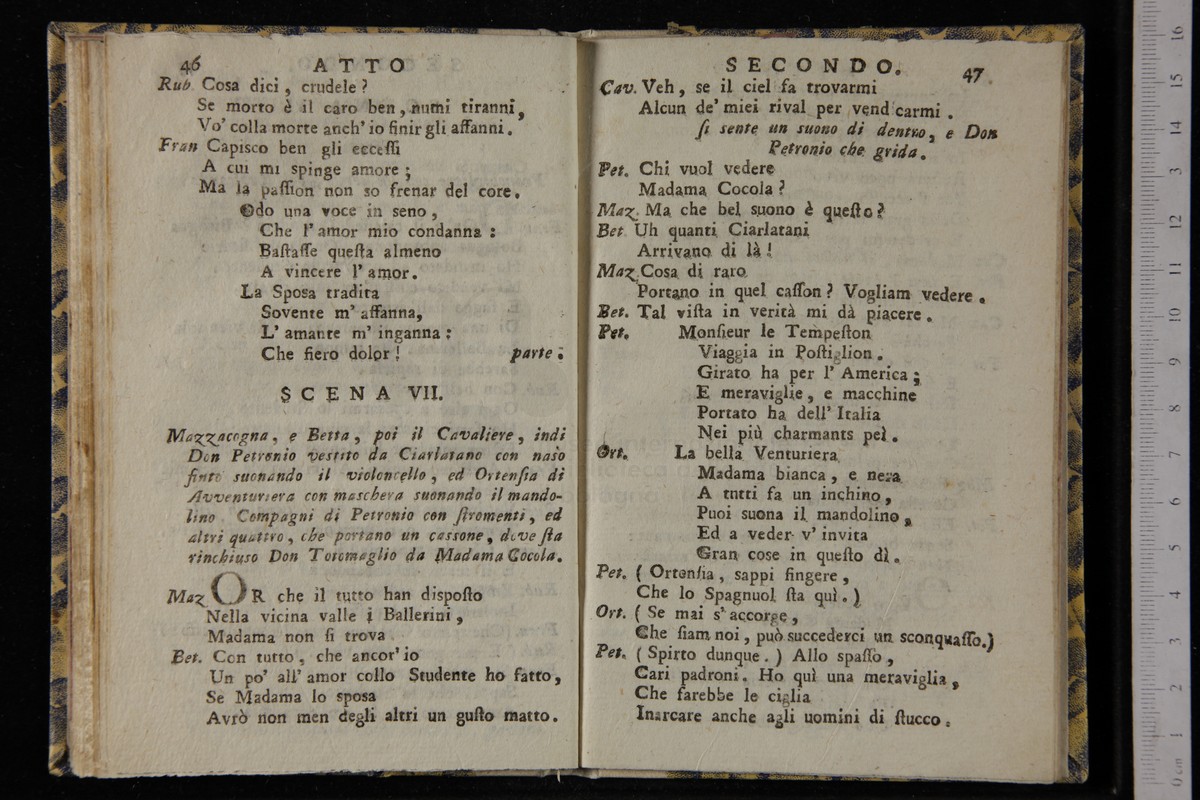 46 ATTO
Rub. Cosa dici, crudele?
Se morto è il caro ben, numi tiranni,
Vo' colla morte anch' io finir gli affanni.
Fran Capisco ben gli eccessi
A cui mi spinge amore;
Ma la passion non so frenar del core.
Odo una voce in seno,
Che l' amor mio condanna:
Bastasse questa almeno
A vincere l' amor.
La Sposa tradita
Sovente m' affanna,
L' amante m' inganna:
Che fiero dolor! parte.
SCENA VII.
Mazzacogna, e Betta, poi il Cavaliere, indi
Don Petronio vestito da Ciarlatano con naso
finto suonando il violoncello, ed Ortensia di
Avventuriera con maschera suonando il mando-
lino. Compagni di Petronio con stromenti, ed
altri quattro, che portano un cassone, dove sta
rinchiuso Don Totomaglio da Madama Cocola.
Maz OR che il tutto han disposto
Nella vicina valle i Ballerini,
Madama non si trova
Bet. Con tutto, che ancor' io
Un po' all' amor collo Studente ho fatto,
Se Madama lo sposa
Avrò non men degli altri un gusto matto.
SECONDO. 47
Cav. Veh, se il ciel fa trovarmi
Alcun de' miei rival per vendicarmi.
si sente un suono di dentro, e Don
Petronio che grida.
Pet. Chi vuol vedere
Madama Cocola?
Maz. Ma che bel suono è questo?
Bet Uh quanti Ciarlatani
Arrivano di là!
Maz. Cosa di raro
Portano in quel casson? Vogliam vedere.
Bet. Tal vista in verità mi dà piacere.
Pet. Monsieur le Tempeston
Viaggia in Postiglion.
Girato ha per l' America;
E meraviglie, e macchine
Portato ha dell' Italia
Nei più charmants peì.
Ort. La bella Venturiera
Madama bianca, e nera
A tutti fa un inchino,
Puoi suona il mandolino,
Ed a veder v' invita
Gran cose in questo dì.
Pet. ( Ortensia, sappi fingere,
Che lo Spagnuol sta quì. )
Ort. ( Se mai s' accorge,
Che siam noi, può succederci un sconquasso.)
Pet. ( Spirto dunque. ) Allo spasso,
Cari padroni. Ho quì una meraviglia,
Che farebbe le ciglia
Inarcare anche agli uomini di stucco.